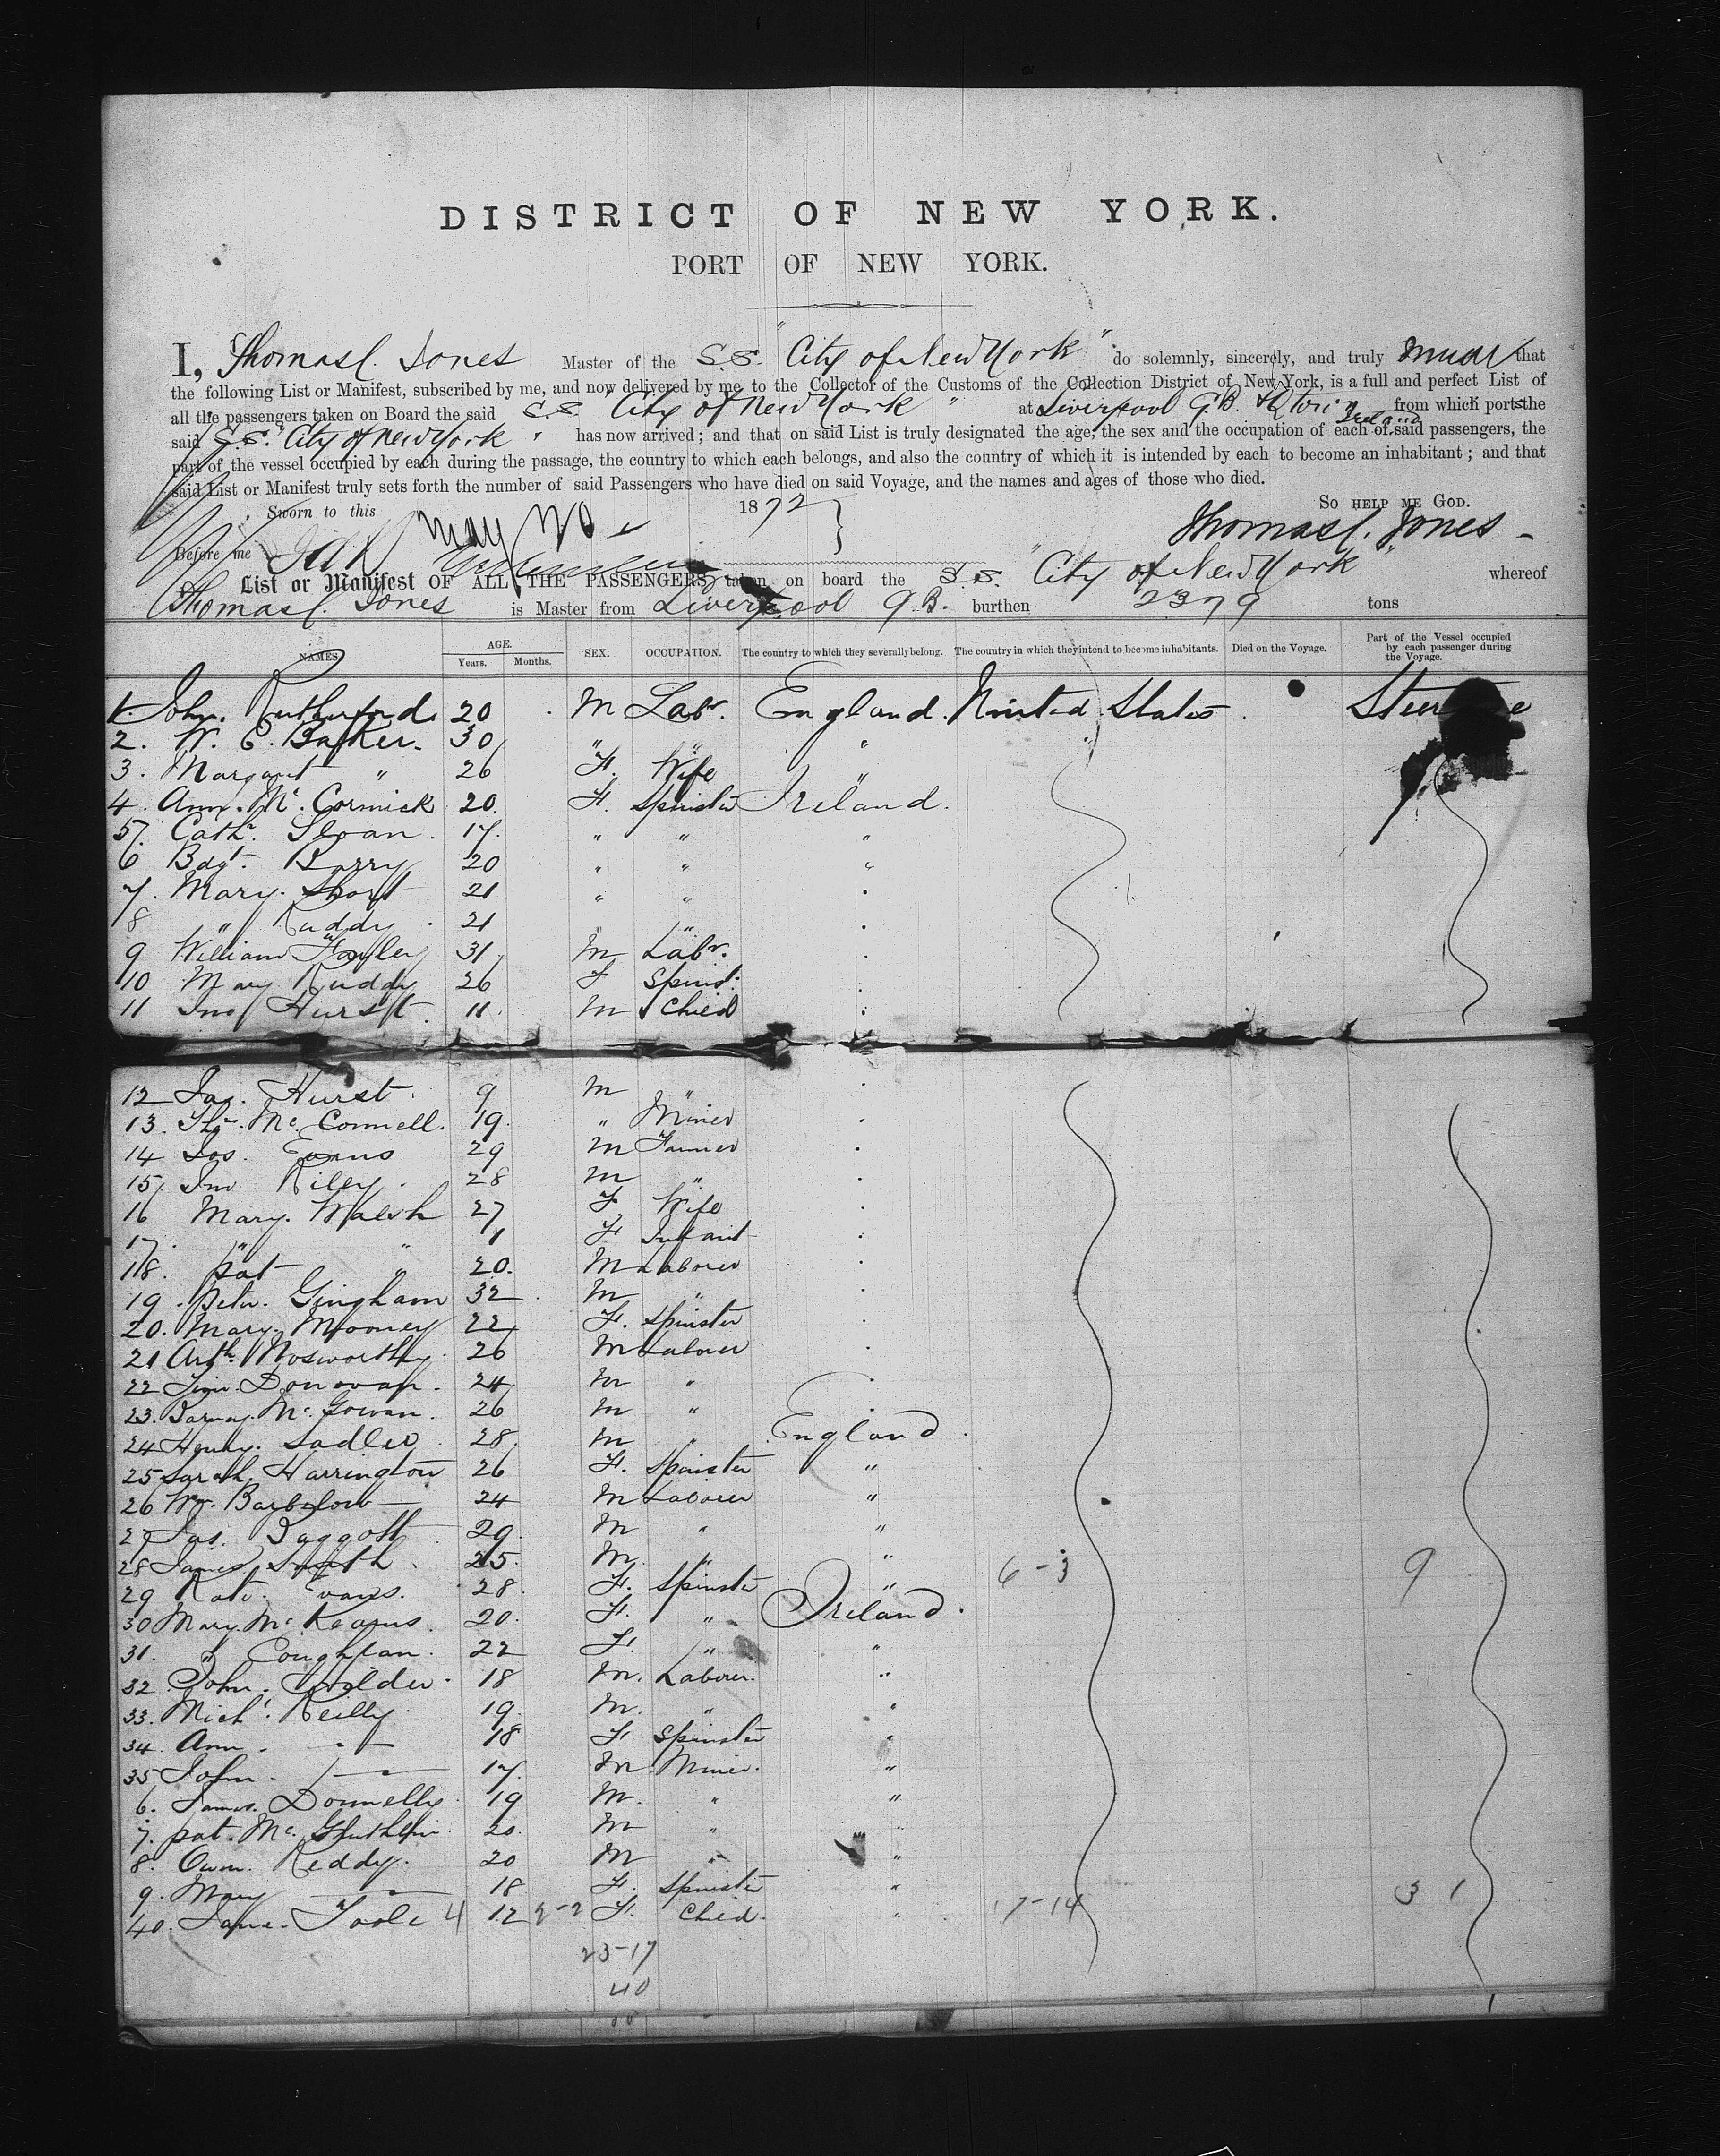 DISTRICT OF NEW YORK.
PORT OF NEW YORK.
I, Thomas C. Jones Master of the S.S. "City of New York" do solemnly, sincerely, and truly swear that
the following List or Manifest, subscribed by me, and now delivered by me to the Collector of the Customs of the Collection District of New York, is a full and perfect List of
all the passengers taken on Board the said S.S. "City of New York" at Liverpool G.B. & Qtown Ireland from which ports the
said S.S. "City of New York" has now arrived; and that on said List is truly designated the age, the sex and the occupation of each of said passengers, the
part of the vessel occupied by each during the passage, the country to which each belongs, and also the country of which it is intended by each to become an inhabitant; and that
said List or Manifest truly sets forth the number of said Passengers who have died on said Voyage, and the names and ages of those who died.
So help me God.
Sworn to this May 20 1872 Thomas C. Jones
Before me
List or Manifest OF ALL THE PASSENGERS taken on board the S.S. "City of New York" whereof
Thomas C. Jones is Master from Liverpool G.B. burthen 2379 tons
NAMES AGE. Years. Months. SEX. OCCUPATION. The country to which they severally belong. The country in which they intend to become inhabitants. Died on the Voyage. Part of the Vessel occupied by each passenger during the Voyage.
1. John Rutherford 20 M Labr. England. United States Steerage
2. W. E. Barker. 30 " " "
3. Margaret " 26 F. Wife "
4. Ann. Mc. Cormick 20. F. Spinster Ireland.
5. Cathe. Sloan. 17. " " "
6 Bdgt. Barry 20 " " "
7. Mary. Short 21 " "
8 " Ruddy. 21 "
9 William 31. M Labr.
10 Mary Ruddy 26 F Spinst.
11 Jno Hurst. 11. M Child
12 Jas. Hurst. 9 M "
13. Mc Connell. 19. " Miner
14 Jos. Evans 29 M Farmer
15. Jno Riley. 28 M "
16 Mary. Walsh 27 F Wife
17. " " 1 F Infant
18. Pat " 20. M Laborer
19. Peter. Gingham 32 M "
20. Mary. Mooney 22 F. Spinster
21 Arth. Nosworthy. 26 M Laborer
22 Tim. Donovan. 24 M "
23. Barney. Mc. Gowan. 26 M "
24 Henry. Sadler 28. M " England.
25 Sarah. Harrington 26 F. Spinster "
26 Wm. 24 M Laborer "
27 Jas. Baggott 29. M " "
28 James Smith. 25. M. " " 6-3 9
29 Kate. Evans. 28. F. Spinster "
30 Mary. Mc Kearns. 20. F. " Ireland.
31. " Coughlan. 22 F. " "
32 John. 18 M. Laborer. "
33. Michl. Reilly. 19. M. " "
34. Ann. " 18 F Spinster "
35 John. " 17. M Miner. "
6. James. Donnelly. 19 M. " "
7. Pat. Mc. 20. M " "
8. Owen. Reddy. 20 M " "
9. Mary " 18 F. Spinster "
40. Jane. Toole 4 12 2-2 F. Child. " 17-14 3 1
23-17
40